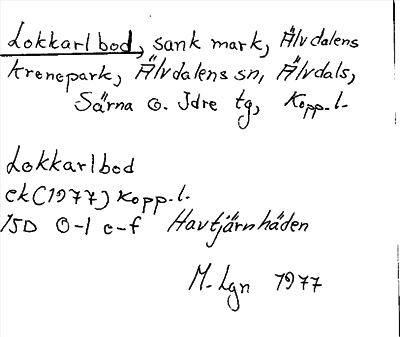 Lokkarlbod, sank mark, Älvdalens
Kronepark, Älvdalens sn, Älvdals,
Särna o. Idre tg, Kopp.l.
Lokkarlbod
ek(1977) Kopp.l.
15D 0-1 e-f Havtjärnhäden
M. Lgn 1977